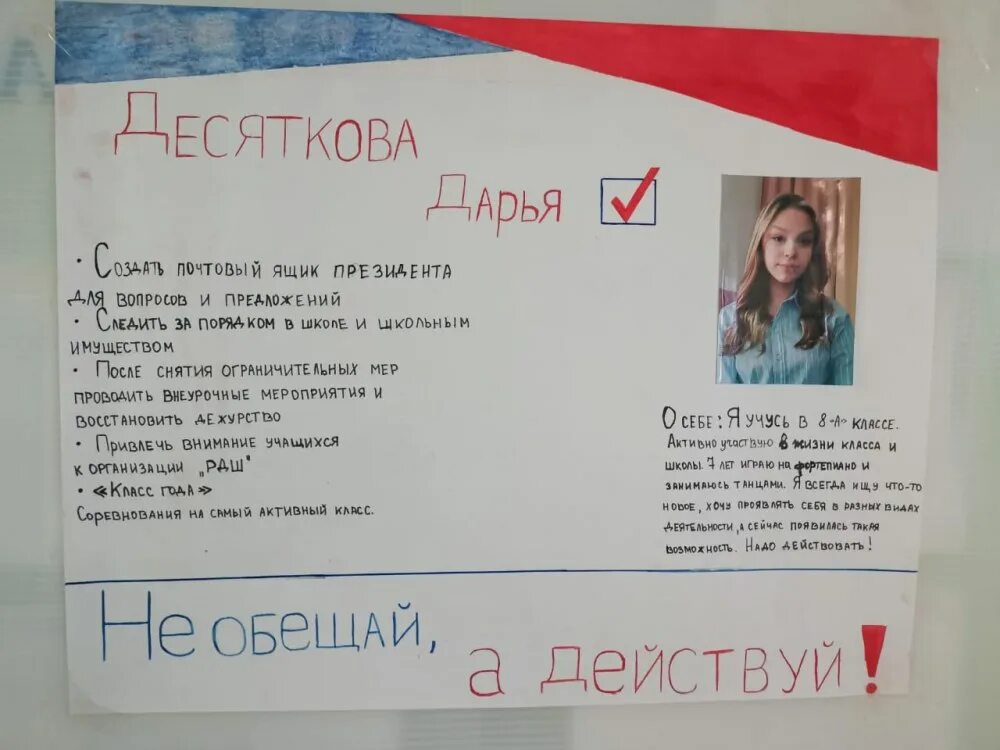 Десяткова
Дарья
• Создать почтовый ящик президента
для вопросов и предложений
• Следить за порядком в школе и школьным
имуществом
• После снятия ограничительных мер
проводить внеурочные мероприятия и
восстановить дежурство
• Привлечь внимание учащихся
к организации „РДШ"
• «Класс года»
Соревнования на самый активный класс.
О себе: Я учусь в 8 «А» классе.
Активно участвую в жизни класса и
школы. 7 лет играю на фортепиано и
занимаюсь танцами. Я всегда ищу что-то
новое, хочу проявлять себя в разных видах
деятельности, а сейчас появилась такая
возможность. Надо действовать!
Не обещай,
а действуй!